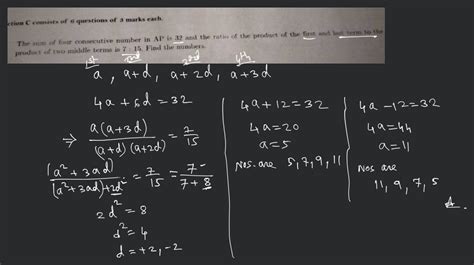 ction C consists of 6 questions of 3 marks each.
The sum of four consecutive number in AP is 32 and the ratio of the product of the first and last term to the
product of two middle terms is 7 : 15. Find the numbers.
1st 2nd 3rd 4th
a, a+d, a+2d, a+3d
4a+6d=32
⇒ a(a+3d)/(a+d)(a+2d) = 7/15
(a²+3ad)/(a²+3ad)+2d² = 7/15 = 7/7+8
2d²=8
d²=4
d=+2,-2
4a+12=32
4a=20
a=5
Nos. are 5,7,9,11
4a-12=32
4a=44
a=11
Nos are
11, 9, 7, 5
A.